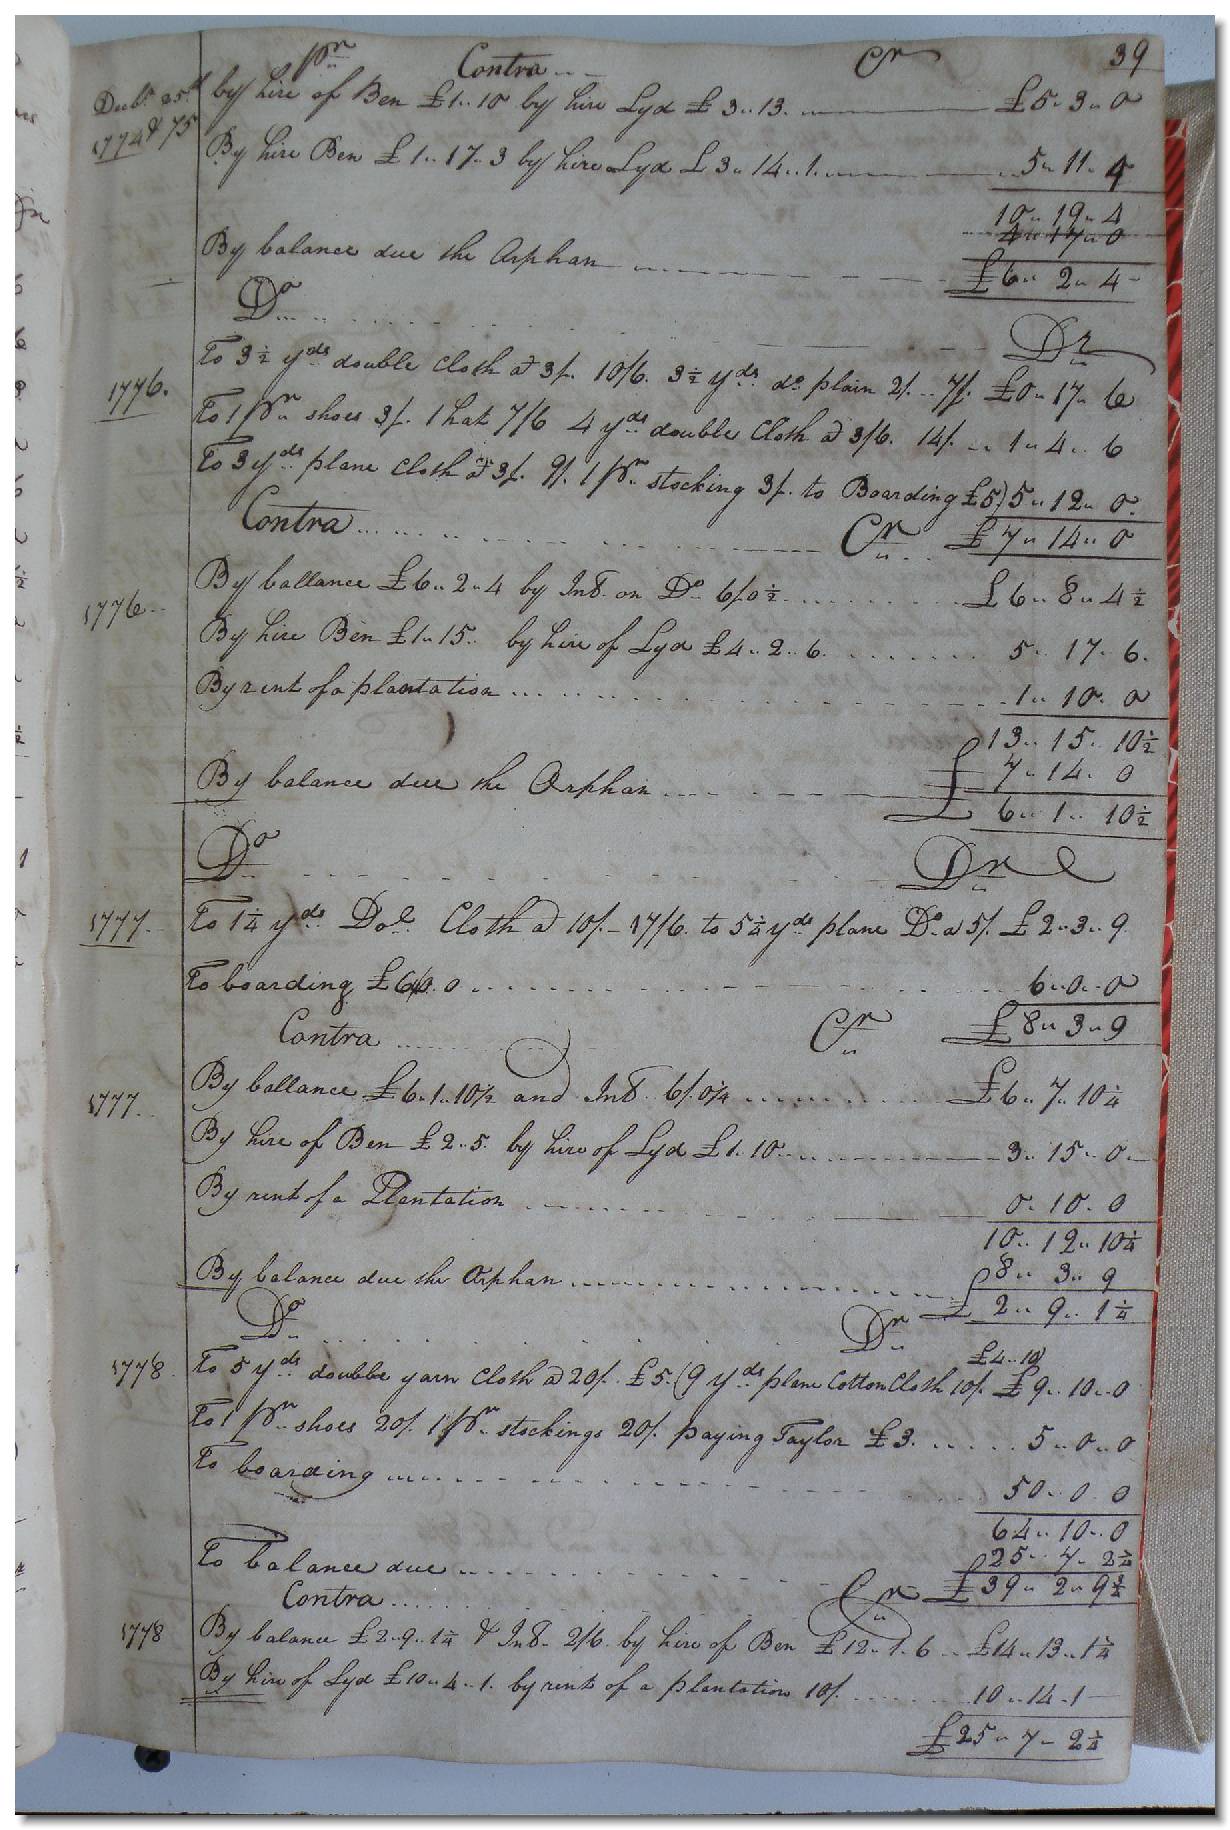 pr Contra Cr 39
Debr 25th by hire of Ben £1..10 by hire Lyd £3..13. £5..3..0
1774 & 75
By hire Ben £1..17..3 by hire Lyd £3..14..1. 5..11..4
10..19..4
4..17..0
By balance due the Orphan £6..2..4
Do Dr
1776. To 3½ yds double cloth @ 3/. 10/6. 3½ yds do plain 2/. 7/. £0..17..6
To 1 pr shoes 3/. 1 hat 7/6 4 yds double Cloth @ 3/6. 14/. 1..4..6
To 3 yds plane cloth @ 3/. 9/. 1 pr stocking 3/. to Boarding £5) 5..12..0.
Contra Cr £7..14..0
1776 By ballance £6..2..4 by Int. on Do 6/0½ £6..8..4½
By hire Ben £1..15.. by hire of Lyd £4..2..6. 5..17..6.
By rent of a plantation 1..10..0
13..15..10½
7..14..0
By balance due the Orphan £6..1..10½
Do Dr
1777. To 1¼ yds Dole Cloth @ 10/. 17/6. to 5¼ yds plane Do @ 5/. £2..3..9
To boarding £6..0..0 6..0..0
Contra Cr £8..3..9
1777 By ballance £6..1..10½ and Int. 6/.0¼ £6..7..10¼
By hire of Ben £2..5. by hire of Lyd £1..10 3..15..0
By rent of a Plantation 0..10..0
10..12..10¼
8..3..9
By balance due the Orphan £2..9..1¼
Do Dr
£4..10)
1778 To 5 yds doubbe yarn Cloth @ 20/. £5. (9 yds plane Cotton Cloth 10/. £9..10..0
To 1 pr shoes 20/. 1 pr stockings 20/. paying Taylor £3. 5..0..0
To boarding 50..0..0
64..10..0
25..7..2¼
To balance due £39..2..9¾
Contra Cr
1778 By balance £2..9..1¼ & Int. 2/6. by hire of Ben £12..1..6 £14..13..1¼
By hire of Lyd £10..4..1. by rent of a plantation 10/. 10..14..1
£25..7..2¼